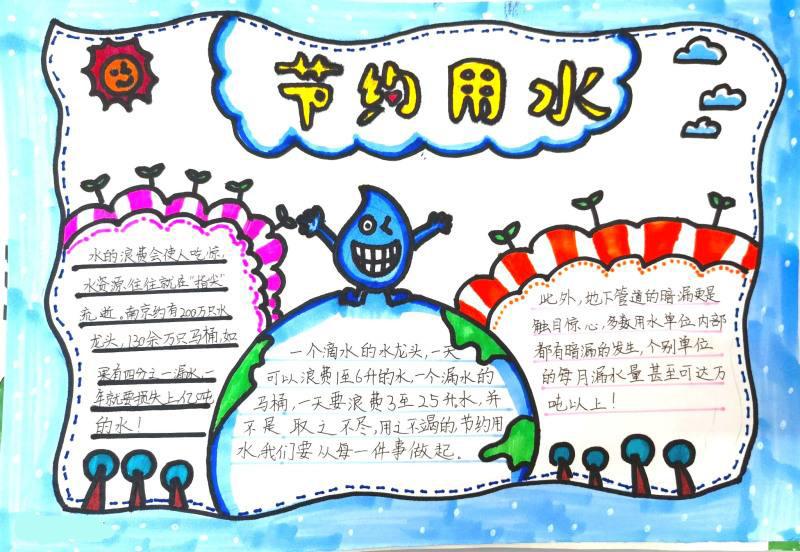 节约用水
水的浪费会使人吃惊,
水资源往往就在“指尖”
流逝。南京约有200万只水
龙头,130余万只马桶,如
果有四分之一漏水,一
年就要损失上亿吨
的水!
一个滴水的水龙头,一天
可以浪费1至6升的水,一个漏水的
马桶,一天要浪费3至25升水,并
不是取之不尽,用之不竭的,节约用
水,我们要从每一件事做起.
此外,地下管道的暗漏更是
触目惊心,多数用水单位内部
都有暗漏的发生,个别单位
的每月漏水量甚至可达万
吨以上!